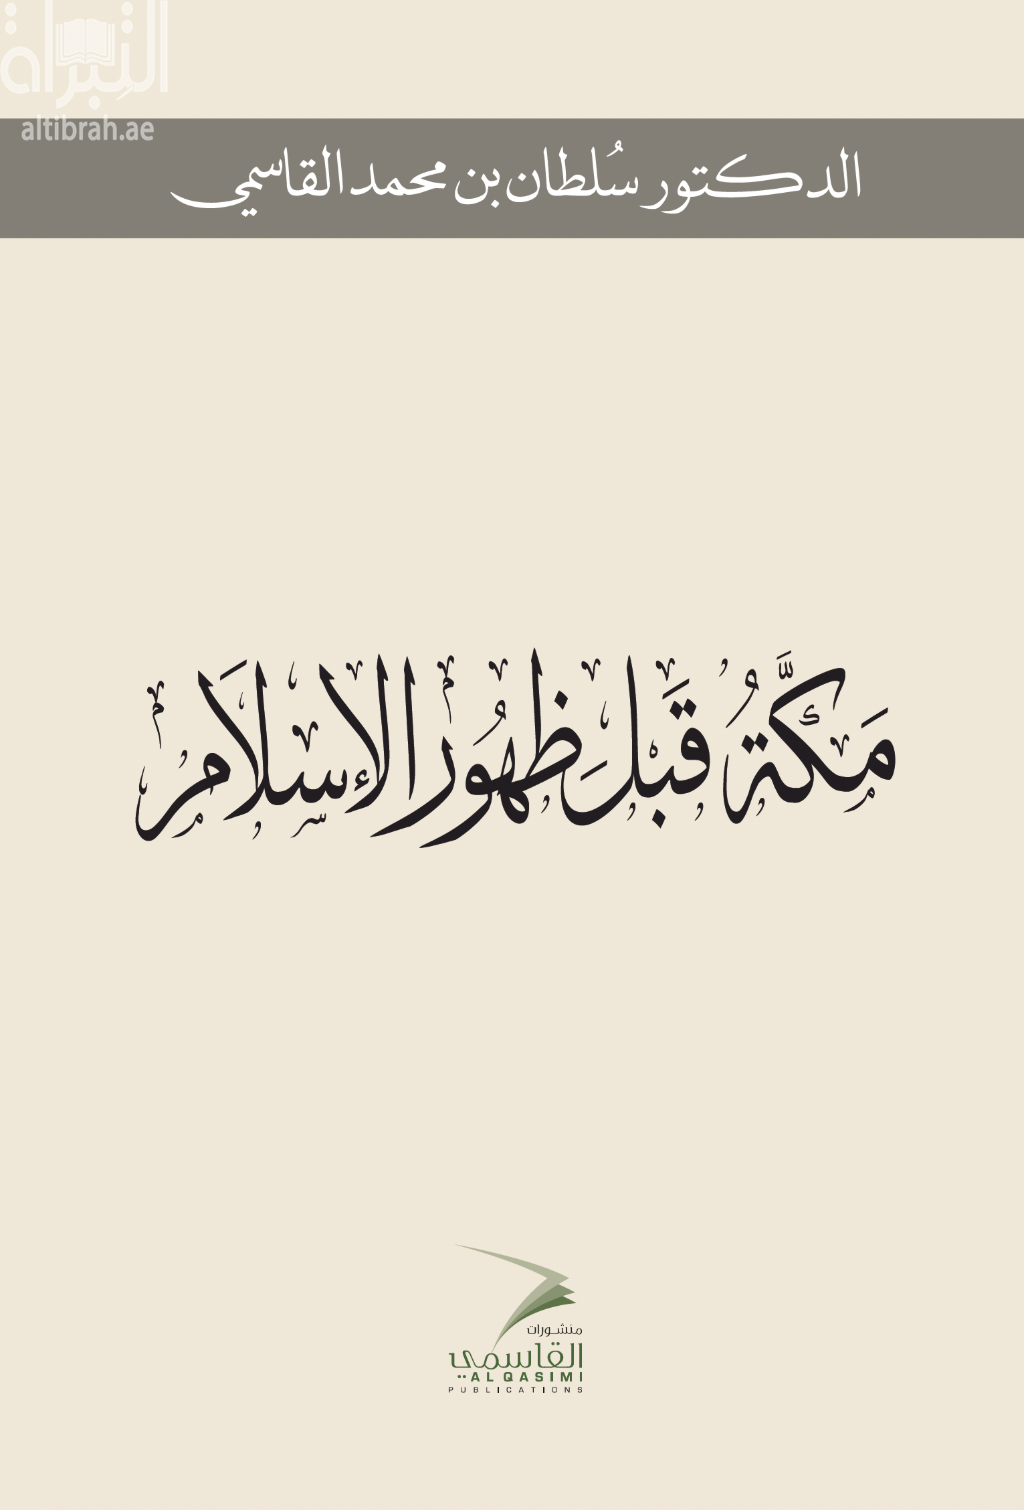 التبراة
altibrah.ae
الدكتور سُلطان بن محمد القاسمي
مَكَّةُ قَبلَ ظهُور الإسلَام
منشورات
القاسمي
AL QASIMI
PUBLICATIONS